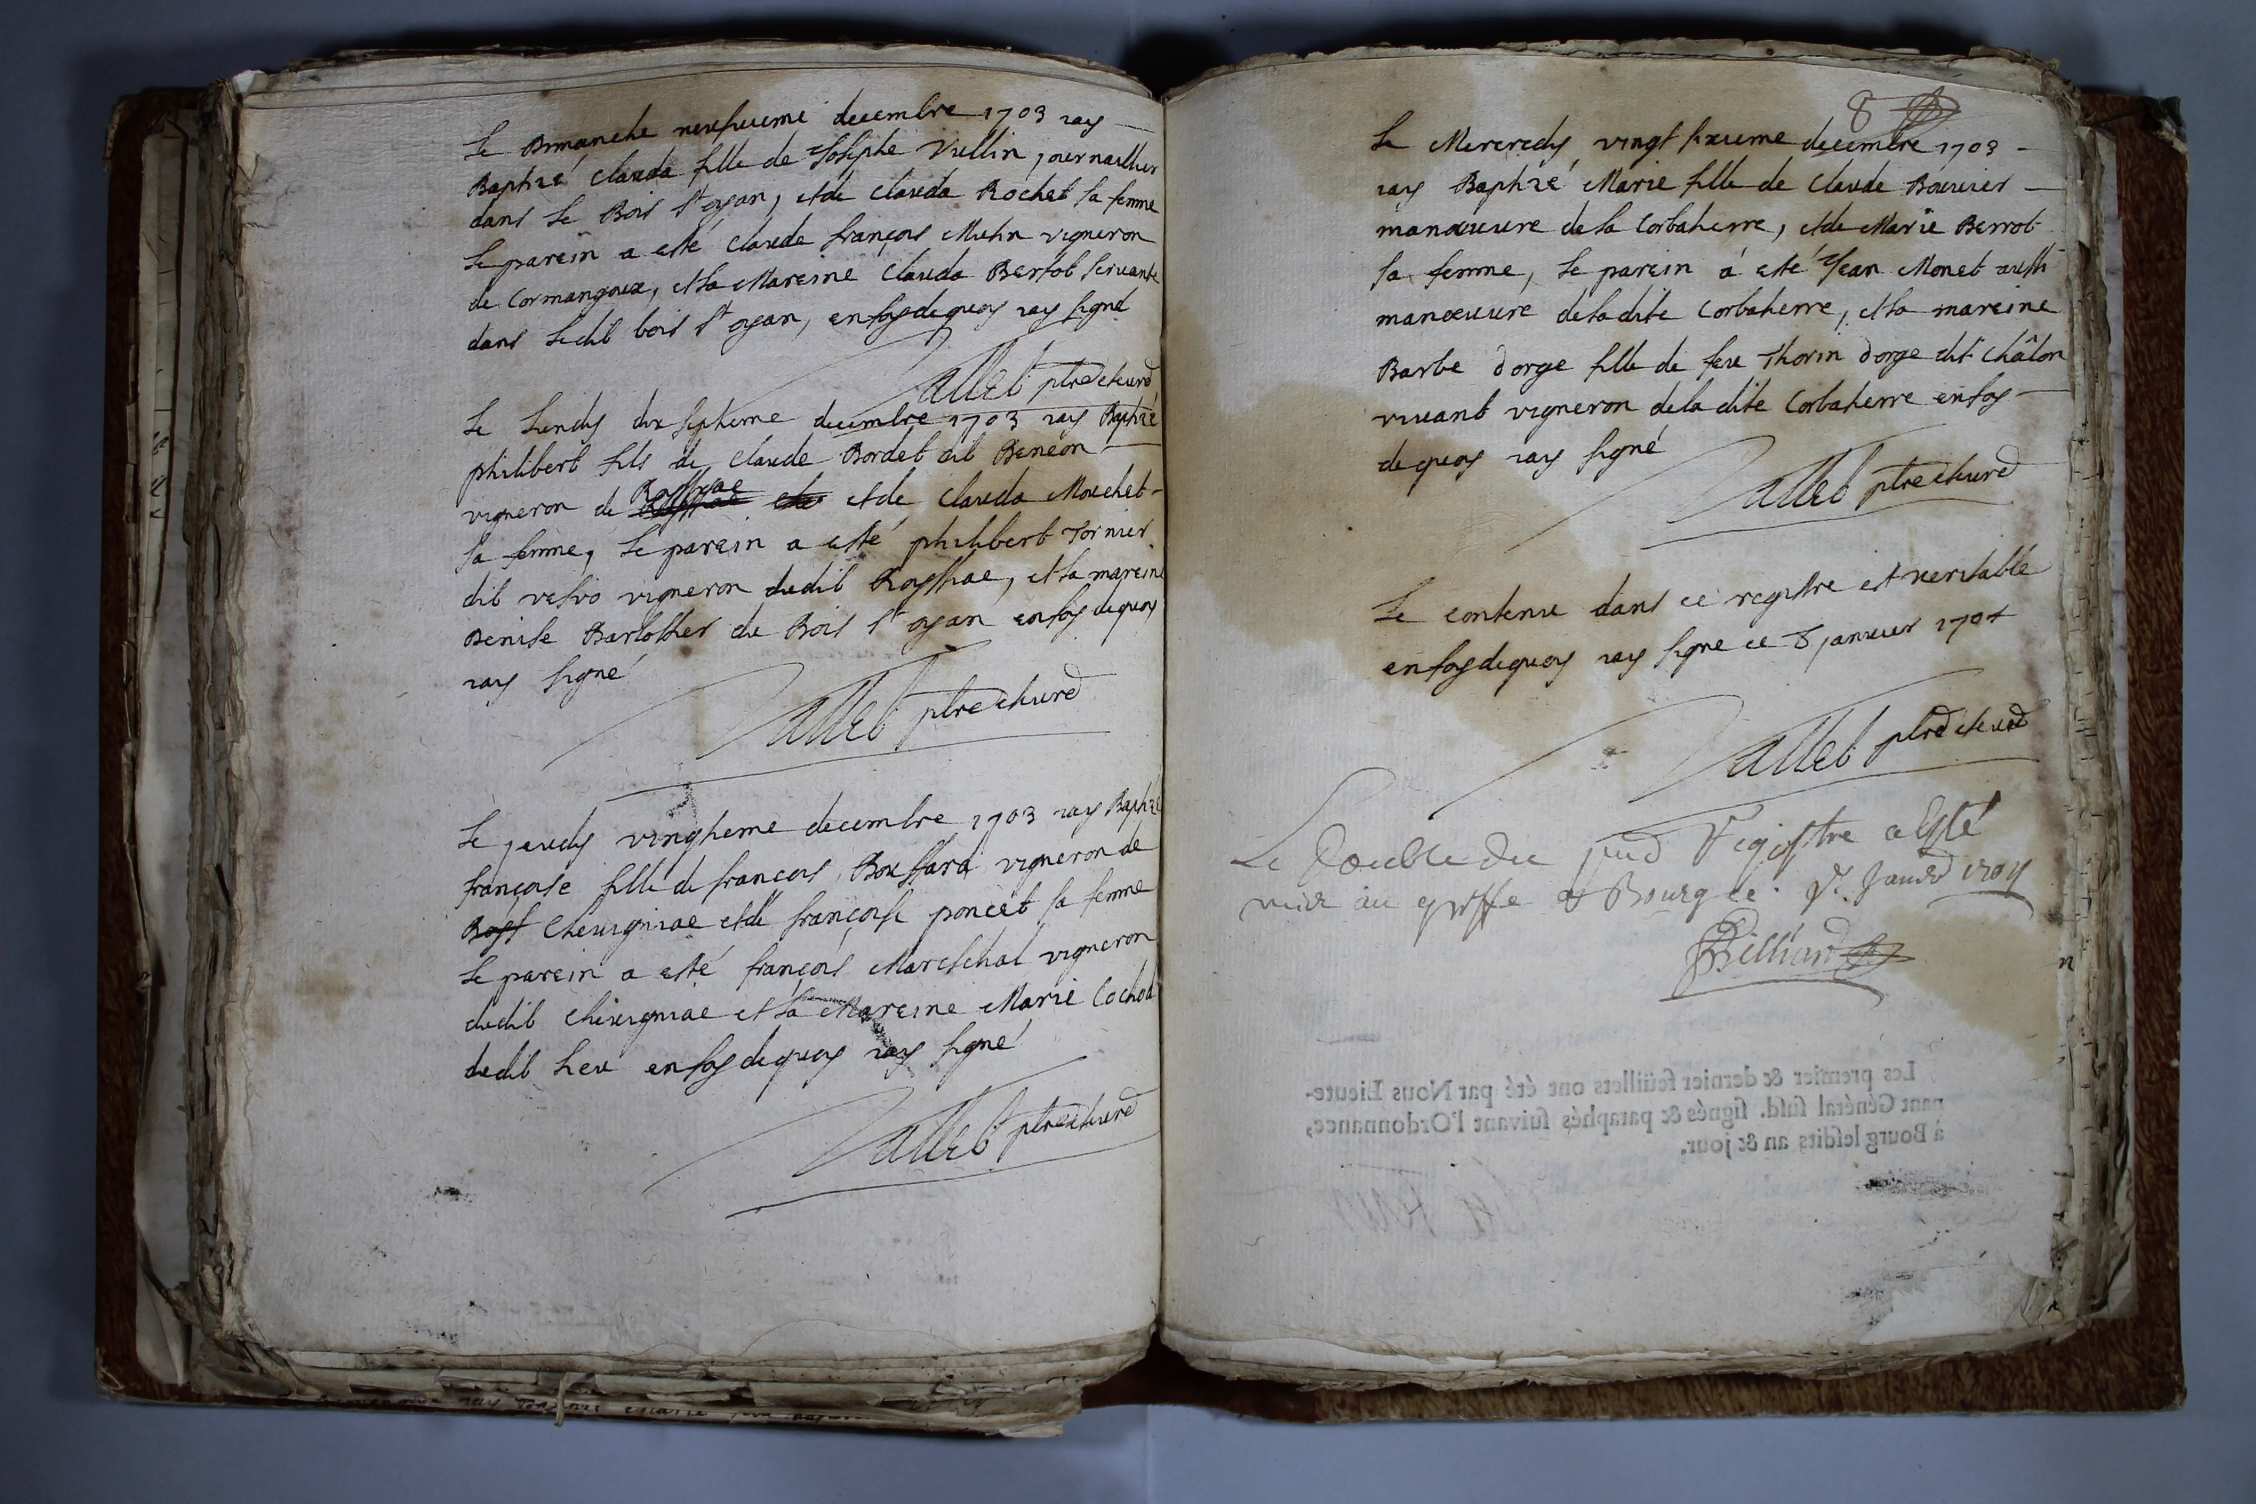 Le Dimanche neufvieme decembre 1703 iay
Baptizé Clauda fille de Josephe Vullin journaillier
dans le Bois St oyan, et de Clauda Rochet sa femme
le parein a esté Claude françois Muthin vigneron
de Cormangoux, et la Mareine Clauda Bertot servante
dans ledit bois St oyan, en foy de quoy iay signé
Vallet ptre et curé
Le Lundy dix septieme decembre 1703 iay Baptizé
philibert fils de Claude Bordet dit Beneon
vigneron de Roissiac et de Clauda Mouchet
sa femme, le parein a esté philibert Tornier
dit vesvo vigneron dudit Roissiac, et la mareine
Denise Barlottier du Bois St oyan en foy de quoy
iay signé
Vallet ptre et curé
Le jeudy vingtieme decembre 1703 iay Baptizé
françoise fille de françois Bouffard vigneron de
Cheuigniac et de françoise poncet sa femme
le parein a esté françois Mareschal vigneron
dudit Cheuigniac et la Mareine Marie Cochod
dudit lieu en foy de quoy iay signé
Vallet ptre et curé
8
Le Mercredy vingt sixieme decembre 1703
iay Baptizé Marie fille de Claude Bouuier
manœuure de la Corbatierre, et de Marie Berrot
sa femme, le parein a esté Jean Monet aussi
manœuure de la dite Corbatierre, et la mareine
Barbe dorge fille de feu Thorin dorge dit Châlon
viuant vigneron de la dite Corbatierre en foy
de quoy iay signé
Vallet ptre et curé
Le contenu dans ce registre est veritable
en foy de quoy iay signe ce 8 januier 1704
Vallet ptre et curé
Le double du pnt Registre a esté
mis au greffe de Bourg ce Janer 1704
Billiard
Les premier & dernier feüillets ont été par Nous Lieute-
nant Général susd. signés & paraphés suivant l'Ordonnance,
à Bourg lesdits an & jour.